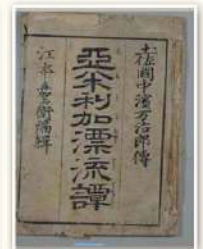 土佐國中濱万治郎傳
亞米利加漂流譚
江本 衛編輯